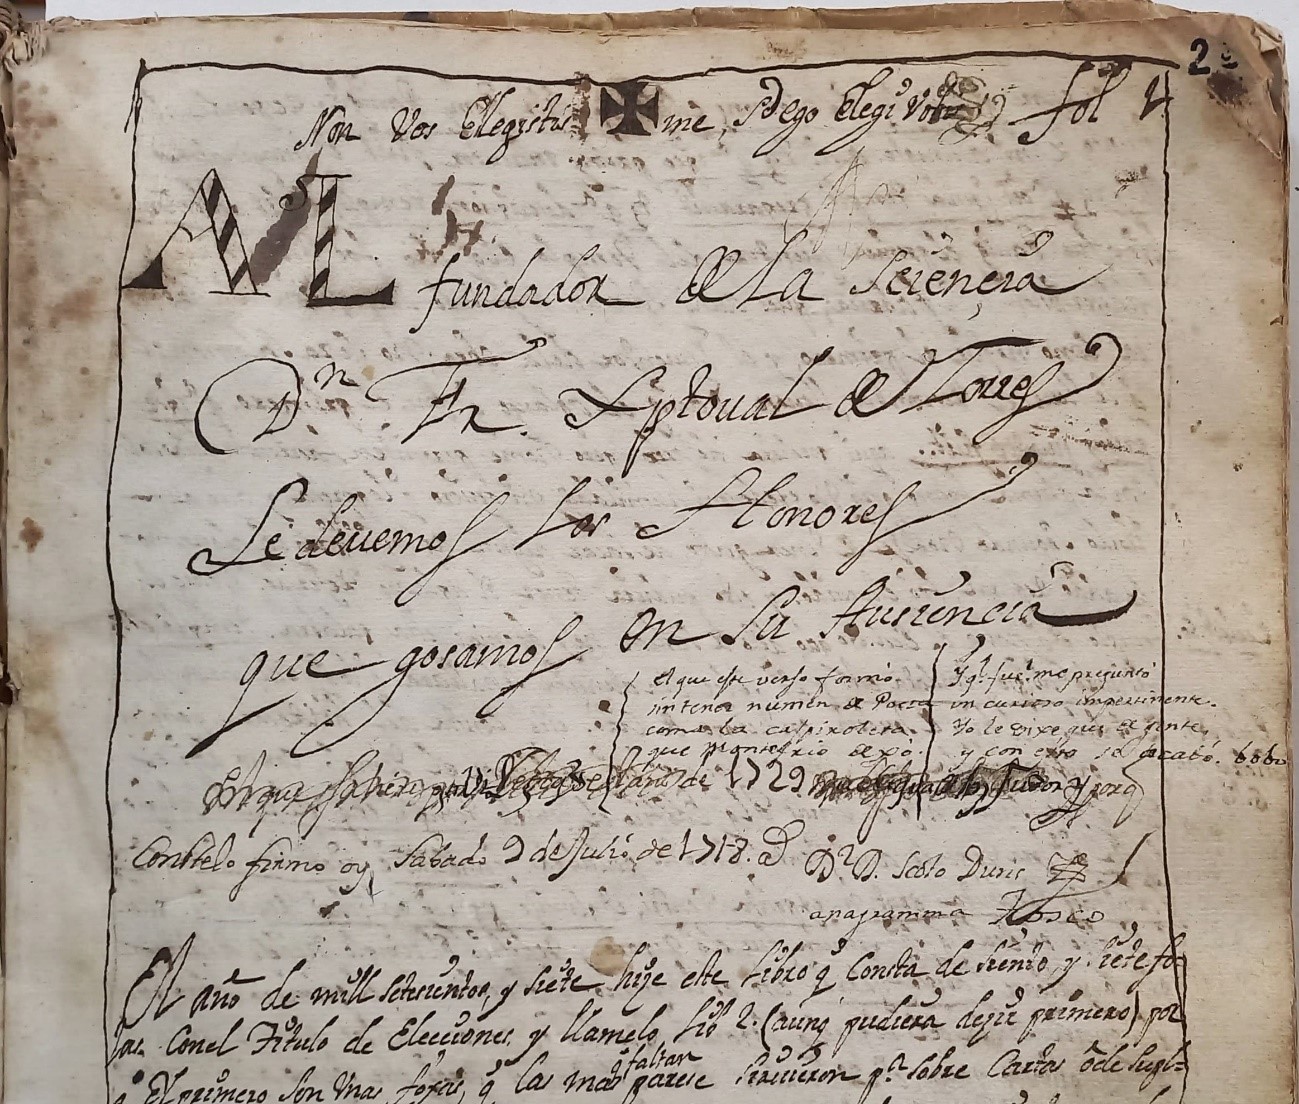 2
Non Vos Elegistis me, Sed ego Elegi Vos fol
AL
fundador de La Sciencia
Dn Fr. Xptoval de Torres
Le devemos los Honores
que gosamos en Su Ausencia
el que este verso formó
sin tener numen de Poeta
como la calpirolera
que Montefrio dexo.
Y q. fue? me preguntó
un curioso impertinente.
Yo le dixe que de gente
y con esto se acabó. bobo
año de 1729 y porq
Conste lo firmo oy Sabado 2 de Julio de 1718. a
Dr D. Scoto Duns
anagramma Tosco
El año de mill setesientos, y siete hize este Libro q Consta de siento, y siete fo-
jas. Con el Titulo de Elecciones, y llamelo Lib 2. (aunq pudiera dezir primero) por
q faltan
q El primero son Unas fojas, q las mas parese sirvieron pa sobre Cartas o de supl-